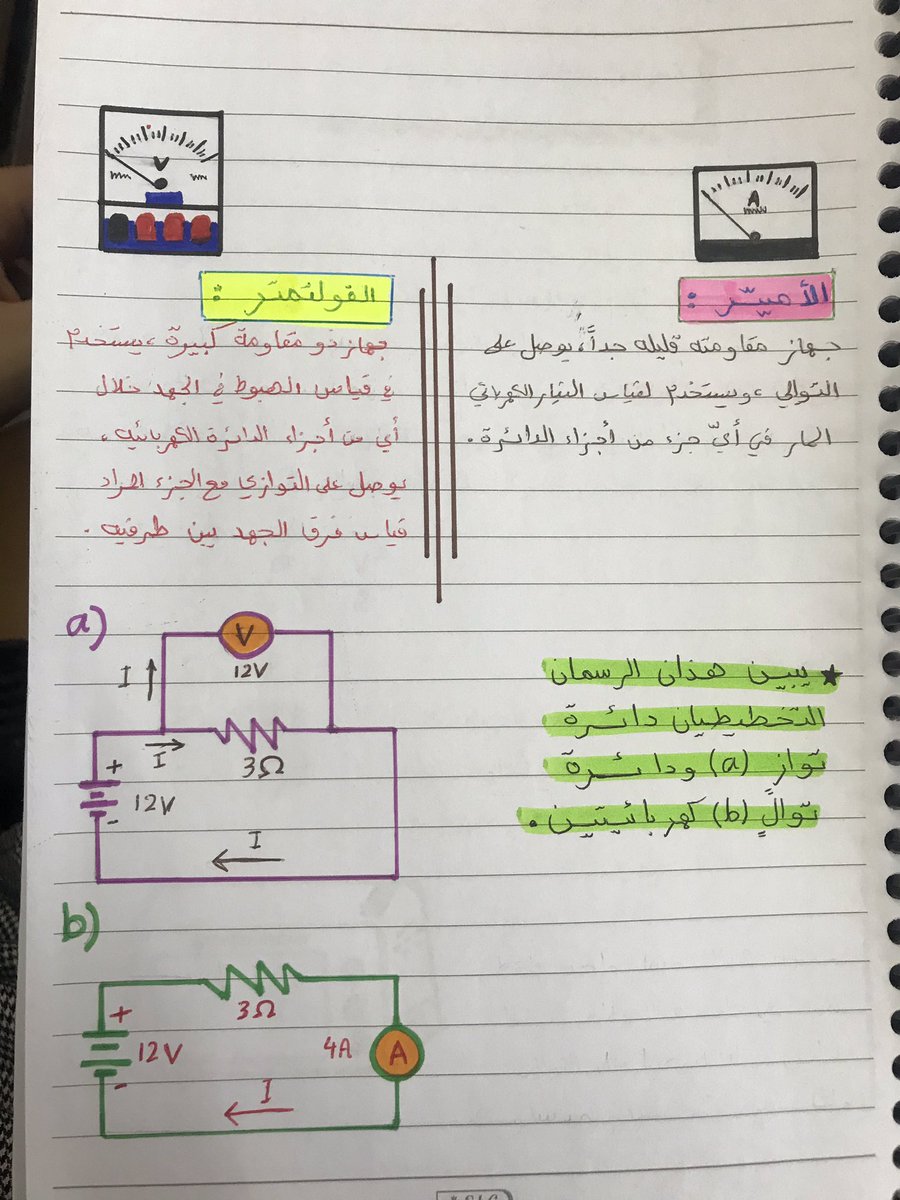 V
A
الأميتر :
جهاز مقاومته قليله جداً، يوصل على
التوالي، ويستخدم لقياس التيار الكهربائي
المار في أيّ جزء من أجزاء الدائرة.
الفولتمتر :
جهاز ذو مقاومة كبيرة، يستخدم
في قياس الهبوط في الجهد خلال
أي من أجزاء الدائرة الكهربائيه،
يوصل على التوازي مع الجزء المراد
قياس فرق الجهد بين طرفيه.
★ يبين هذان الرسمان
التخطيطيان دائرة
تواز (a) ودائرة
توالٍ (b) كهربائيتين.
a)
V
12V
I
I
3Ω
+
12V
-
I
b)
3Ω
+
12V
-
4A
A
I